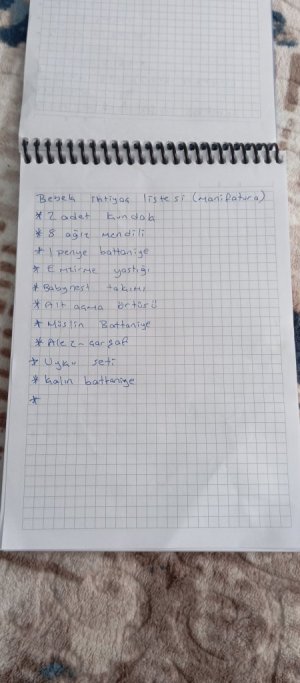 Bebek ihtiyaç listesi (Manifatura)
* 2 adet kundak
* 8 ağız mendili
* 1 penye battaniye
* Emzirme yastığı
* Babynest takımı
* Alt açma örtüsü
* Müslin Battaniye
* Alez - çarşaf
* Uyku seti
* Kalın battaniye
*